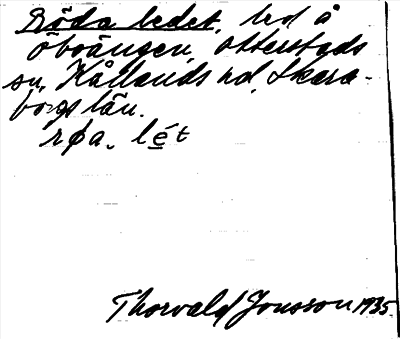 Röda ledet, led å
Öboängen, Otterstads
sn, Kållands hd, Skara-
borgs län.
røa. lét
Thorvald Jonsson 1935